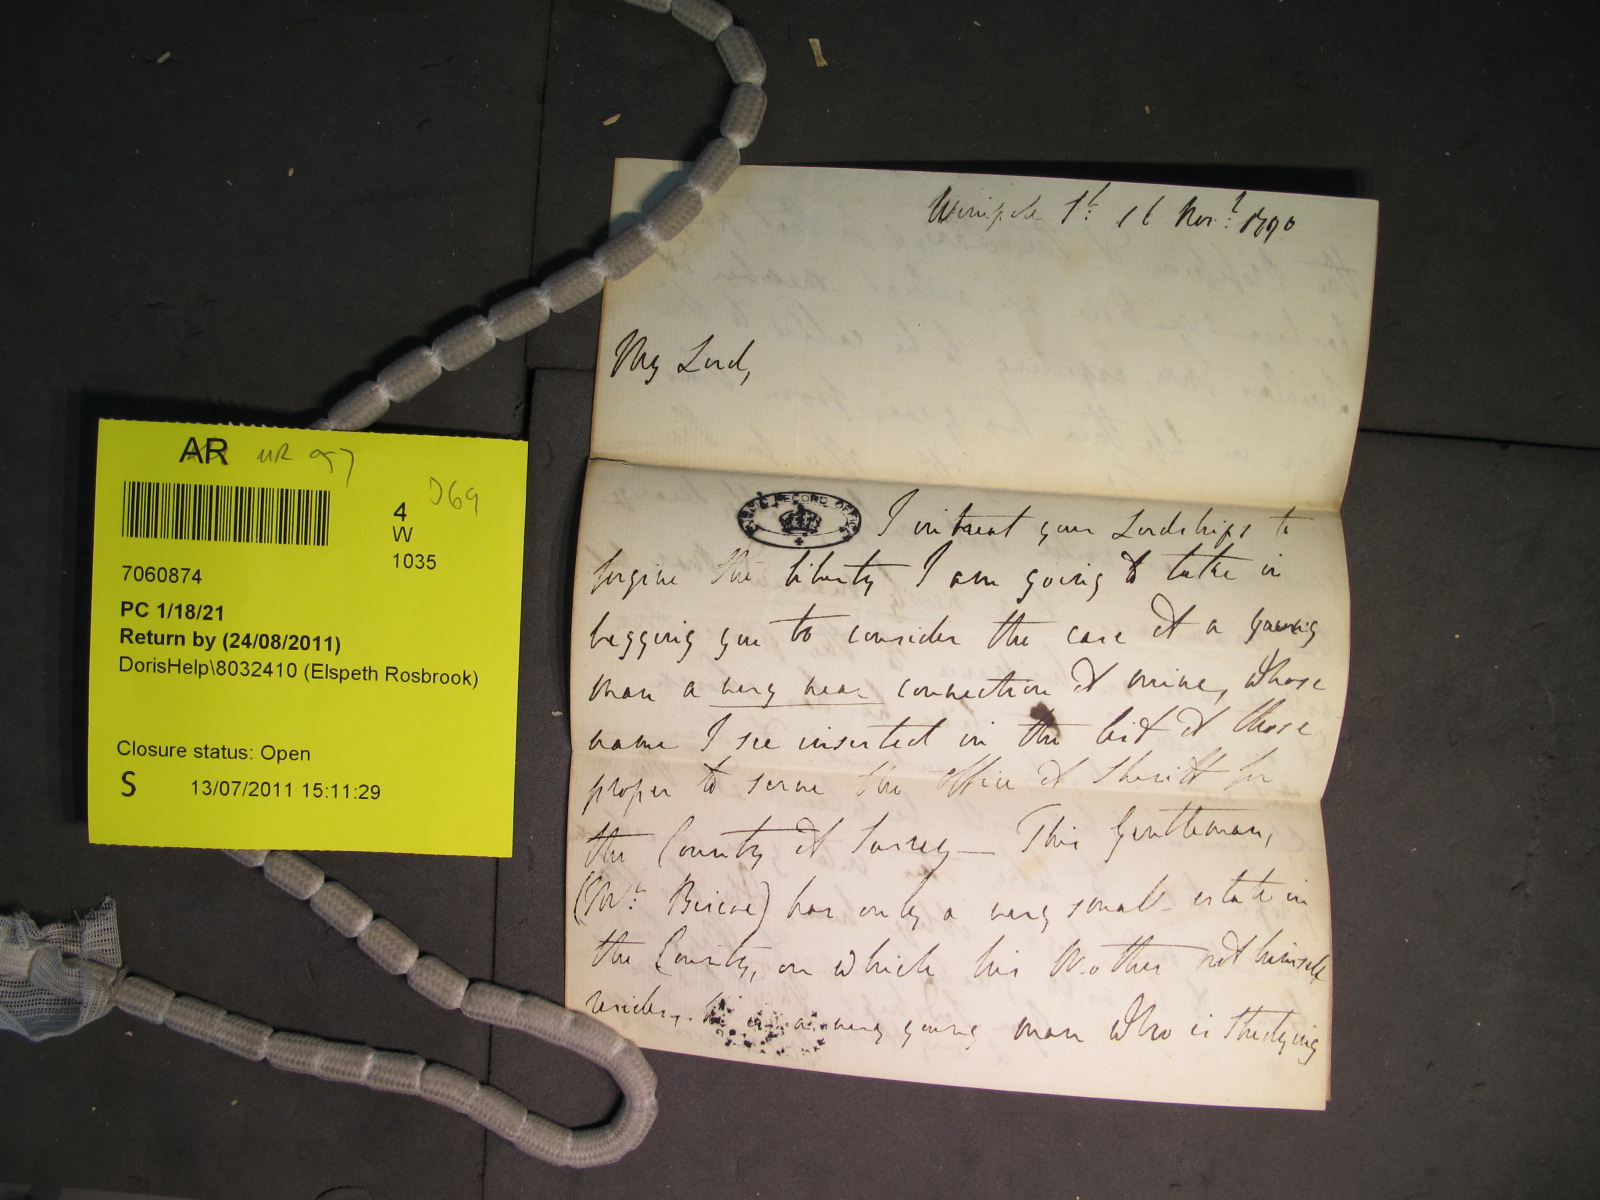 AR UR
D69
4
W
1035
7060874
PC 1/18/21
Return by (24/08/2011)
DorisHelp\8032410 (Elspeth Rosbrook)
Closure status: Open
S 13/07/2011 15:11:29
Wimpole St: 16 Novr: 1790
My Lord,
PUBLIC RECORD OFFICE
I intreat your Lordships to
forgive the liberty I am going to take in
begging you to consider the case of a young
man a very near connection of mine, whose
name I see inserted in the list of those
proper to serve the office of Sheriff for
the County of Surrey — This Gentleman,
(Mr: Biscoe) has only a very small estate in
the County, on which his Mother not himself
resides, he is a very young man who is studying